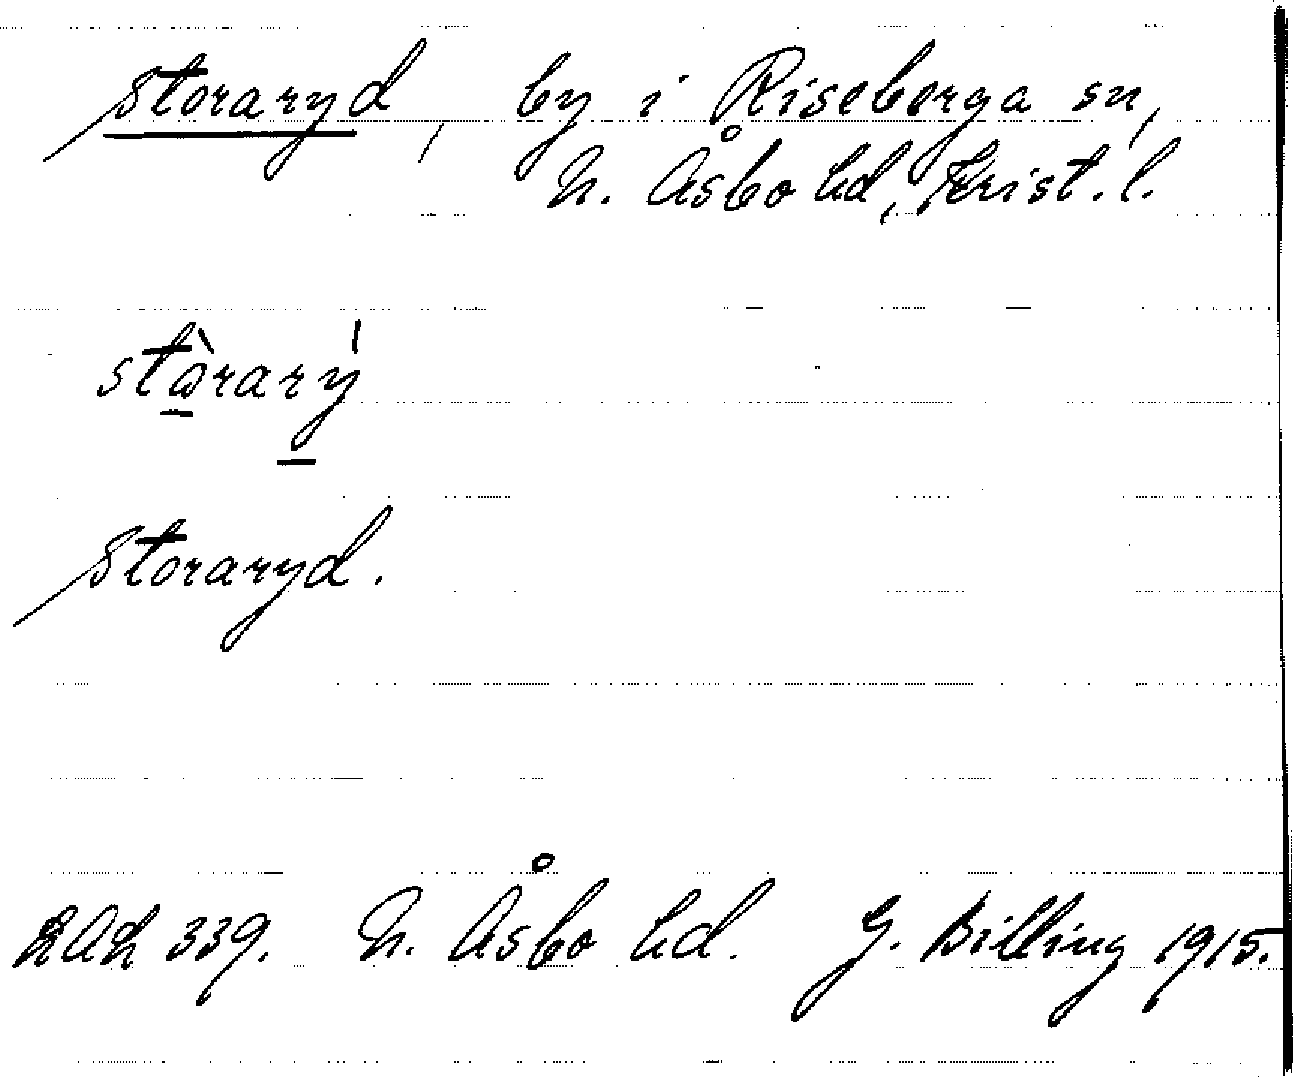 Storaryd, by i Riseberga sn,
N. Åsbo hd, Krist. l.
stòrarý
Storaryd.
LAL 339. N. Åsbo hd. G. Billing 1915.